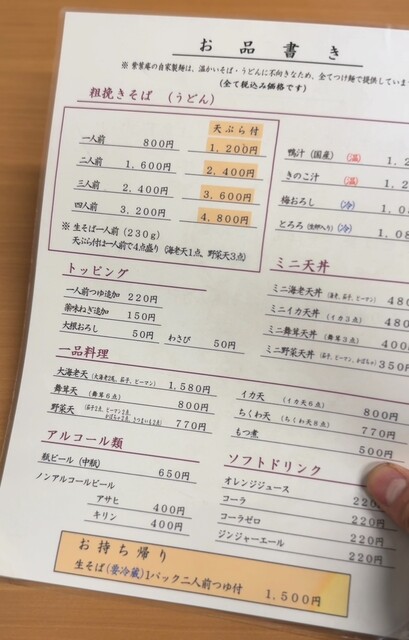 お品書き
※ 紫葉庵の自家製麺は、温かいそば・うどんに不向きなため、全てつけ麺で提供していま
(全て税込み価格です)
粗挽きそば (うどん)
天ぷら付
一人前 800円 1,200円
二人前 1,600円 2,400円
三人前 2,400円 3,600円
四人前 3,200円 4,800円
※ 生そば一人前 (230g)
天ぷら付は一人前で4点盛り (海老天1点、野菜天3点)
鴨汁 (国産) (温) 1,2
きのこ汁 (温) 1,2
梅おろし (冷) 1,0
とろろ (生卵入り) (冷) 1,08
トッピング
一人前つゆ追加 220円
薬味ねぎ追加 150円
大根おろし 50円 わさび 50円
ミニ天丼
ミニ海老天丼 (海老、茄子、ピーマン) 480
ミニイカ天丼 (イカ3点) 480
ミニ舞茸天丼 (舞茸3点) 400
ミニ野菜天丼 (茄子、ピーマン、かぼちゃ) 350円
一品料理
大海老天 (大海老2点、茄子、ピーマン) 1,580円
舞茸天 (舞茸6点) 800円
野菜天 770円
イカ天 (イカ天6点) 800円
ちくわ天 (ちくわ天8点) 770円
もつ煮 500円
アルコール類
瓶ビール (中瓶) 650円
ノンアルコールビール
アサヒ 400円
キリン 400円
ソフトドリンク
オレンジジュース 220
コーラ 220
コーラゼロ 220円
ジンジャーエール 220円
お持ち帰り
生そば(要冷蔵)1パック二人前つゆ付 1,500円